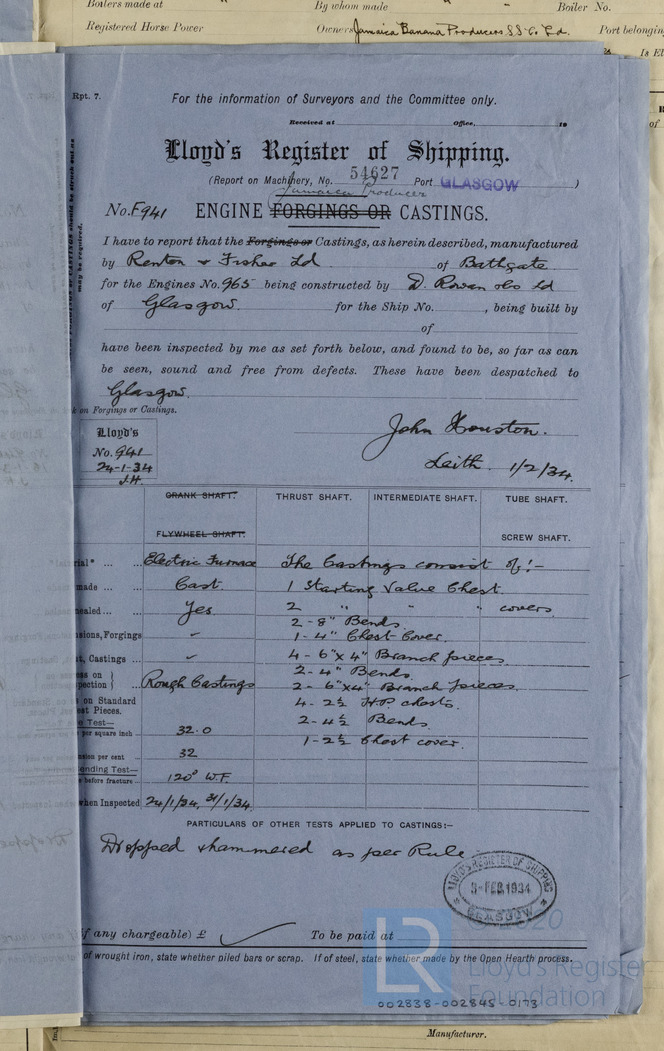 Boilers made at By whom made Boiler No.
Registered Horse Power Owners Jamaica Banana Producers S.S. Co Ld. Port belonging
Is El
Rpt. 7.
For the information of Surveyors and the Committee only.
Received at Office, 19
Lloyd's Register of Shipping.
(Report on Machinery, No. 54627 Port GLASGOW )
Jamaica Producer
No. F941 ENGINE FORGINGS OR CASTINGS.
I have to report that the Forgings or Castings, as herein described, manufactured
by Renton & Fisher Ld of Bathgate
for the Engines No. 965 being constructed by D. Rowan &Co Ld
of Glasgow. for the Ship No. , being built by
of
have been inspected by me as set forth below, and found to be, so far as can
be seen, sound and free from defects. These have been despatched to
Glasgow.
k on Forgings or Castings.
Lloyd's
No. 941
24-1-34
J.H.
John Houston.
Leith. 1/2/34.
CRANK SHAFT. THRUST SHAFT. INTERMEDIATE SHAFT. TUBE SHAFT.
FLYWHEEL SHAFT. SCREW SHAFT.
erial* ... ... Electric Furnace The Castings consist of:-
made ... ... Cast. 1 Starting Valve Chest.
nealed ... ... Yes. 2 " " " covers
2 - 8" Bends.
sions, Forgings - 1 - 4" Chest Cover.
t, Castings ... - 4 - 6" x 4" Branch pieces
2 - 4" Bends.
ess on }
pection} ... Rough Castings 2 - 6" x 4" Branch pieces.
on Standard 4 - 2½ H.P. chests.
est Pieces.
Test— 2 - 4½ Bends.
per square inch ... 32.0
1 - 2½ Chest cover.
nsion per cent 32
ending Test—
before fracture ... 120° W.F.
when Inspected 24/1/34, 31/1/34.
PARTICULARS OF OTHER TESTS APPLIED TO CASTINGS:—
Dropped & hammered as per Rule
LLOYD'S REGISTER OF SHIPPING
3-FEB.1934
GLASGOW
if any chargeable) £ To be paid at
2020
of wrought iron, state whether piled bars or scrap. If of steel, state whether made by the Open Hearth process.
LR
Lloyd's Register
Foundation
002838-002845-0173
Manufacturer.